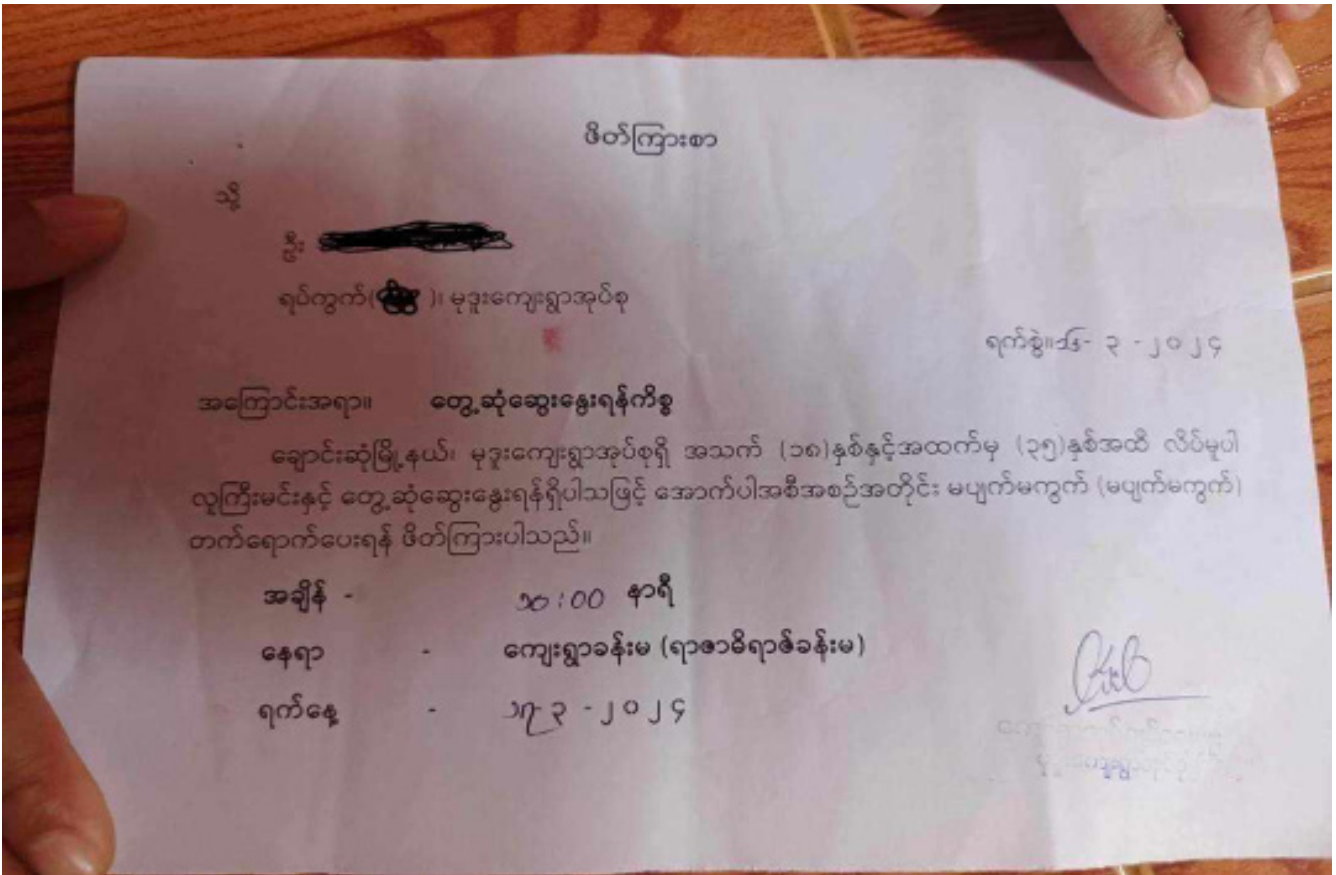 ဖိတ်ကြားစာ
သို့
ဦး
ရပ်ကွက်( )၊ မုဒူးကျေးရွာအုပ်စု
ရက်စွဲ။ ၁၆- ၃ -၂၀၂၄
အကြောင်းအရာ။ တွေ့ဆုံဆွေးနွေးရန်ကိစ္စ
ချောင်းဆုံမြို့နယ်၊ မုဒူးကျေးရွာအုပ်စုရှိ အသက် (၁၈)နှစ်နှင့်အထက်မှ (၃၅)နှစ်အထိ လိပ်မူပါ
လူကြီးမင်းနှင့် တွေ့ဆုံဆွေးနွေးရန်ရှိပါသဖြင့် အောက်ပါအစီအစဉ်အတိုင်း မပျက်မကွက် (မပျက်မကွက်)
တက်ရောက်ပေးရန် ဖိတ်ကြားပါသည်။
အချိန် - ၁၀:00 နာရီ
နေရာ - ကျေးရွာခန်းမ (ရာဇာဓိရာဇ်ခန်းမ)
ရက်နေ့ - ၁၇-၃ -၂၀၂၄